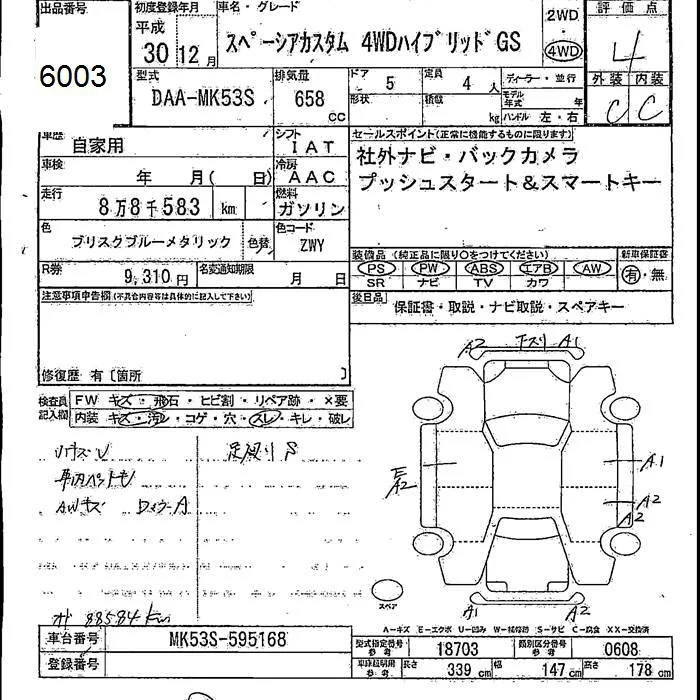 出品番号 初度登録年月 車名・グレード 2WD 評価点
6003 平成 30 12月 スペーシアカスタム 4WDハイブリッドGS 4WD 4
型式 排気量 ドア 5 定員 4人 ディーラー・並行 外装 内装
DAA-MK53S 658 CC 形状 積載 kg モデル年式 年 ハンドル 左・右 C C
車歴 自家用 シフト IAT セールスポイント(正常に機能するものに限ります)
車検 年 月( 日) 冷房 AAC 社外ナビ・バックカメラ
走行 8万8千583 km 燃料 ガソリン プッシュスタート&スマートキー
色 ブリスクブルーメタリック 色替 色コード ZWY
装備品 (純正品に限り○をつけてください) 新車保証書
PS PW ABS エアB AW 有・無
SR ナビ TV カワ
R券 9,310円 名変通知期限 月 日
後日品 保証書・取説・ナビ取説・スペアキー
注意事項申告欄(不具合内容等は具体的に記入して下さい)
修復歴 有〔箇所 〕
検査員記入欄 FW キズ・飛石・ヒビ割・リペア跡・×要
内装 キズ・汚レ・コゲ・穴・スレ・キレ・破レ
A2 下スリ A1
足廻りS
AWキズ
A1
A2
A2
A2
スペア
A1 A2
88584km
A-キズ E-エクボ U-凹み W-補修跡 S-サビ C-腐食 XX-交換済
車台番号 MK53S-595168 型式指定番号 参考 18703 類別区分番号 参考 0608
登録番号 車庫証明用 参考 長さ 339cm 幅 147cm 高さ 178cm